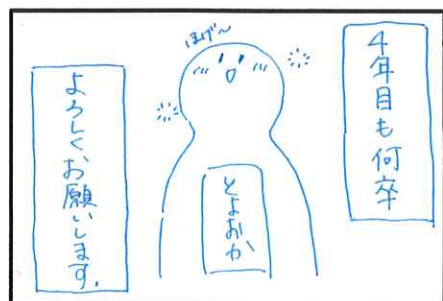 4年目も何卒
ほげ〜
とよおか
よろしくお願いします.